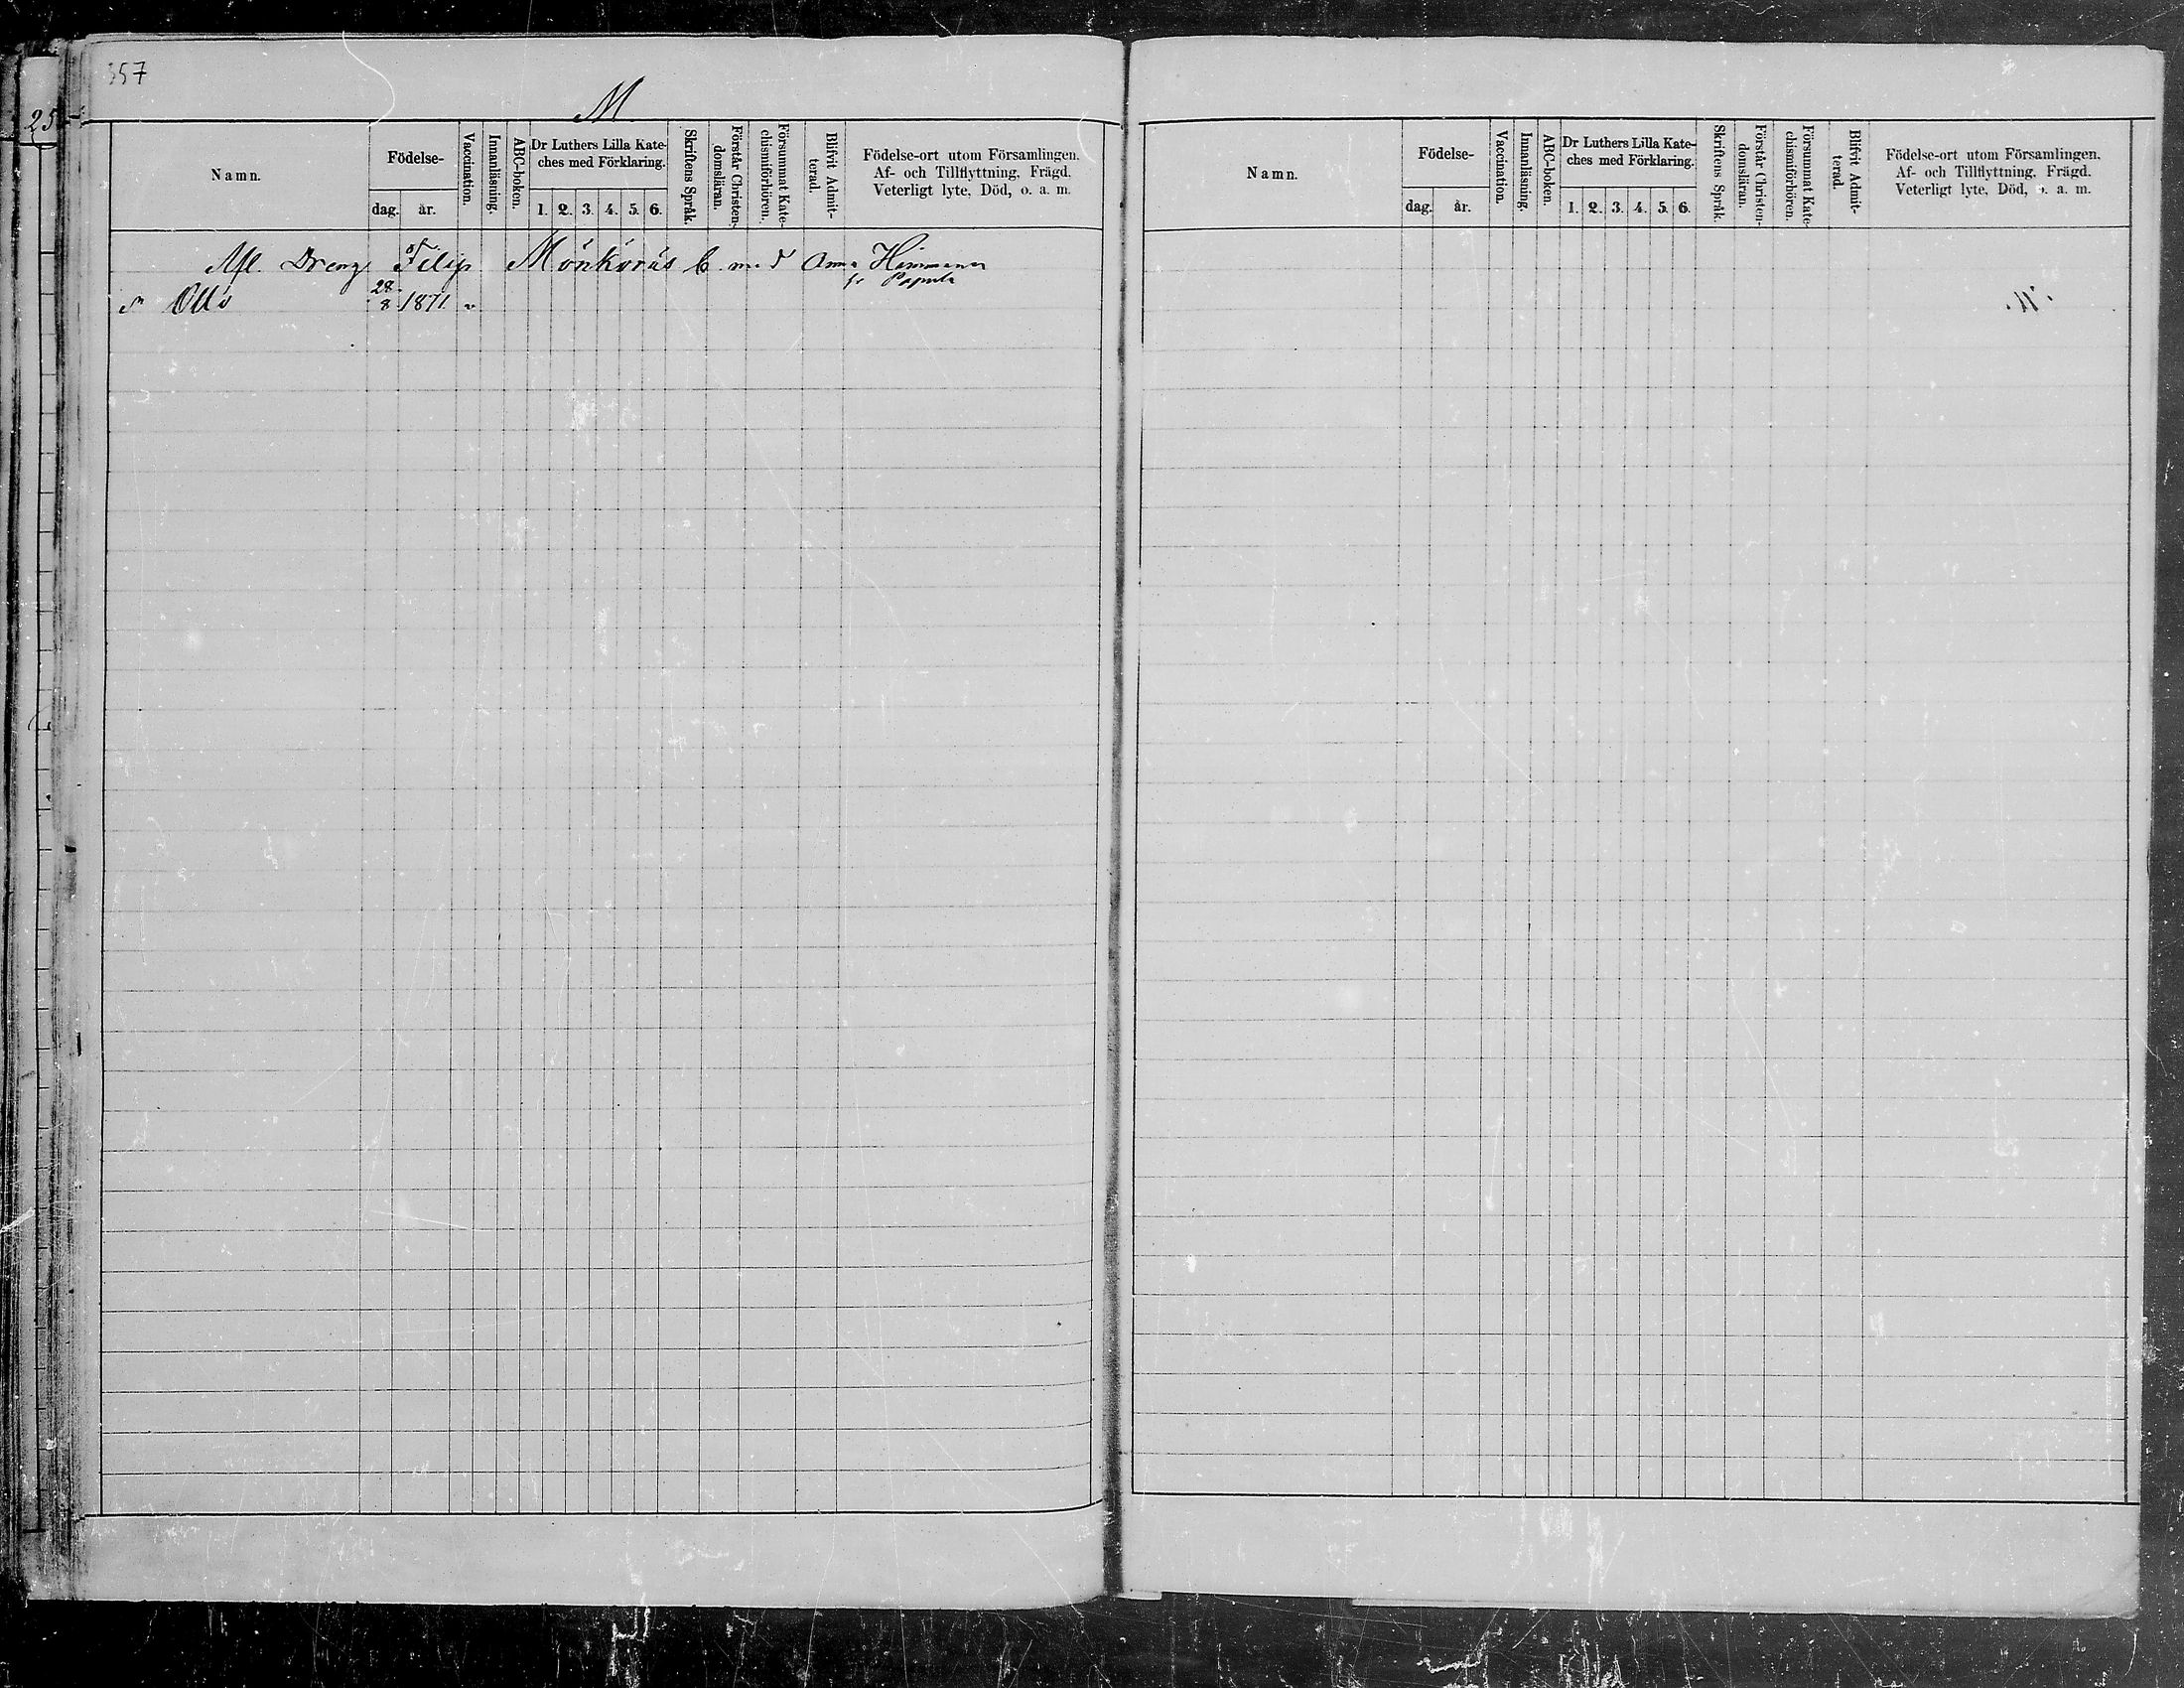 357
25
M.
Namn.
Födelse-
dag.
år.
Vaccination.
Innanläsning.
ABC-boken.
Dr Luthers Lilla Kate-
ches med Förklaring.
1. 2. 3. 4. 5. 6.
Skriftens Språk.
Förstår Christen-
domsläran.
Försummat Kate-
chismiförhören.
Blifvit Admit-
terad.
Födelse-ort utom Församlingen.
Af- och Tillflyttning. Frägd.
Veterligt lyte, Död, o. a. m.
Afl. Dreng Filip Mönkörös b. med Anna Himmanen
fr
Otto 28/8 1871
Namn.
Födelse-
dag.
år.
Vaccination.
Innanläsning.
ABC-boken.
Dr Luthers Lilla Kate-
ches med Förklaring.
1. 2. 3. 4. 5. 6.
Skriftens Språk.
Förstår Christen-
domsläran.
Försummat Kate-
chismiförhören.
Blifvit Admit-
terad.
Födelse-ort utom Församlingen.
Af- och Tillflyttning. Frägd.
Veterligt lyte, Död, o. a. m.